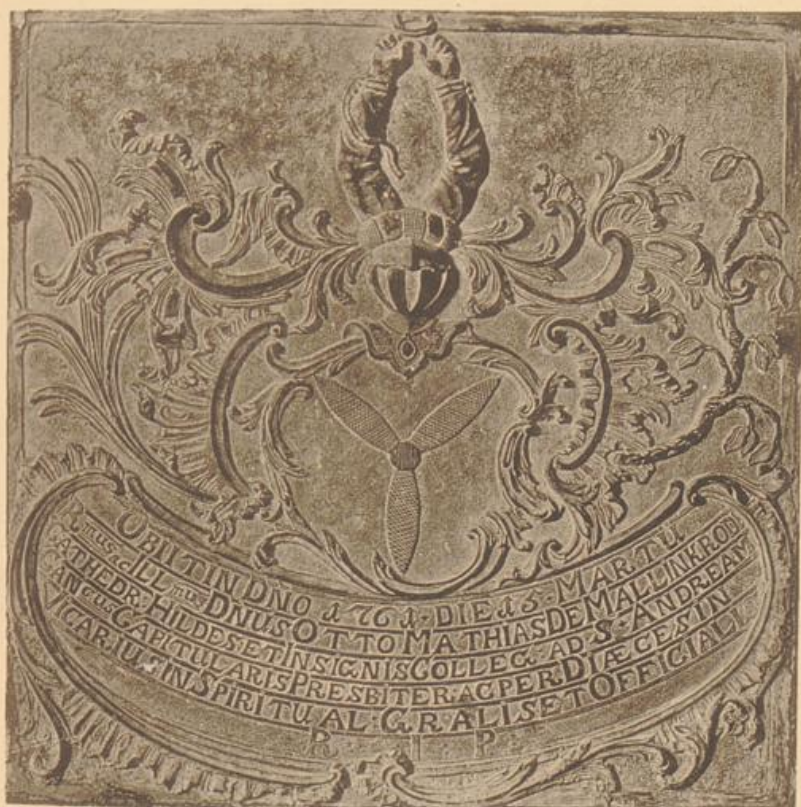 OBIIT IN DNO 1761·DIE 15·MARTII
Rmus ac ILLmus DNUS OTTO MATHIAS DE MALLINKRODT
CATHEDR: HILDES ET INSIGNIS COLLEG. AD S·ANDREAM
CANCUS CAPITULARIS PRESBITER. AC PER DIÆCESIN
VICARIUS IN SPIRITUAL·GRALIS ET OFFICIALIS
R I P